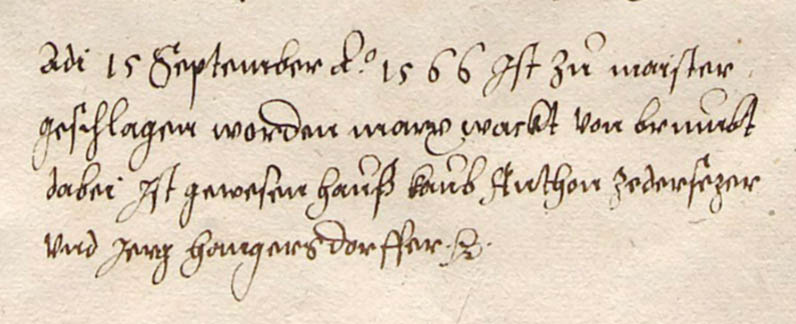 Adi 15 September Ao 1566 Ist zu maister
geschlagen worden marx wackt von
dabei Ist gewesen hanß kaub Anthon zedersezer
vnd Jerg hongersdorffer